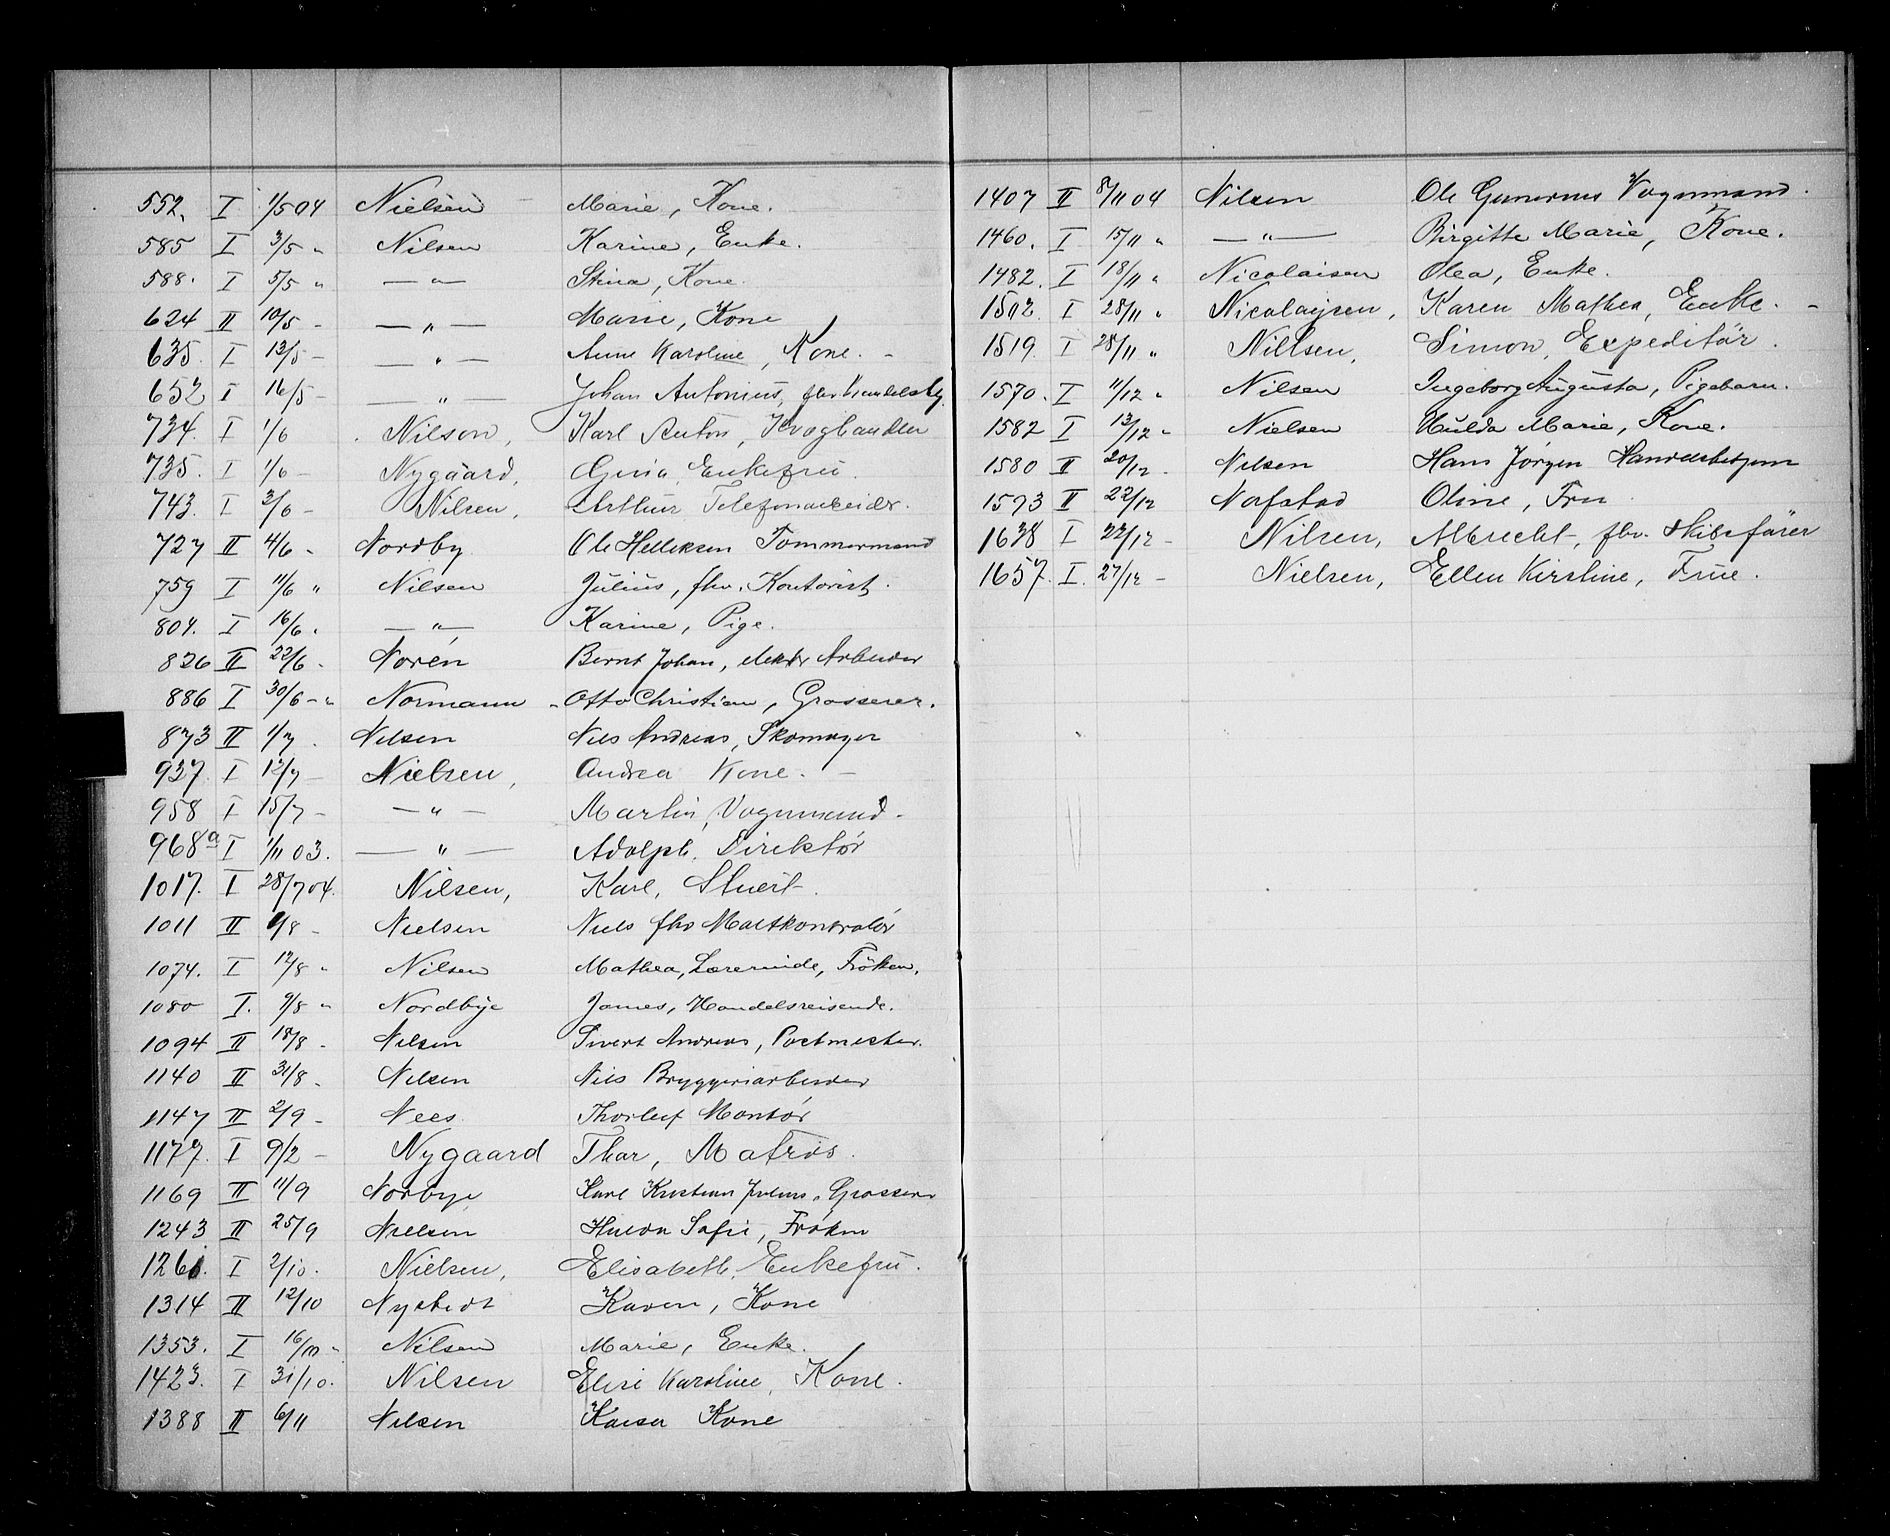 552. I 1/5 04 Nielsen Marie, Kone.
585 I 3/5 " Nilsen Karine, Enke.
588. I 5/5 " — " — Stina, Kone.
624 II 10/5 - — " — Marie, Kone
635. I 13/5 - — " — Anne Karoline, Kone. -
652 I 16/5 - — " — Johan Antonius, fhv Handelsbg.
734. I 1/6 . Nilson, Karl Anton, Kvæghandler
735. I 1/6 - Nygaard, Gina Enkefru
743. I 3/6 - Nilsen, Arthur Telefonarbeider.
727 II 4/6 - Nordby Ole Helleksen Tømmermand
759 I 11/6 " Nilsen Julius, fhv. Kontorist.
804. I 16/6 . — " — Karine, Pige.
826 II 22/6 - Norén Bernt Johan, elektr Arbeider
886 I 30/6 - " Normann - Otto Christian, Grosserer.
873 II 1/7 . Nilsen Nils Andreas, Skomager
937. I 12/7 - Nielsen, Andrea Kone. -
958 I 15/7 - — " — Martin, Vognmand -
968a I 1/11 03. — " — Adolph. Direktør
1017. I 28/7 04. Nilsen, Karl, Stuert.
1011 II 1/8 - Nielsen Niels fhv Maltkontrolør
1074. I 12/8 " Nilsen Mathea, Lærerinde, Frøken.
1080 I. 9/8 " Nordbye James, Handelsreisende.
1094 II 18/8 - Nilsen Sivert Andreas, Postmester.
1140 II 31/8 - Nilsen Nils Bryggeriarbeider
1147 II 2/9 - Nees Thorleif Montør
1177. I 9/2 - Nygaard Thor, Matros.
1169 II 11/9 Norbye Karl Kristian Julius, Grosserer
1243 II 25/9 Nielsen Hulda Sofie, Frøken
1261. I 2/10. Nielsen, Elisabeth, Enkefru.
1314 II 12/10 Nystedt Karen, Kone
1353. I 16/10 - Nilsen Marie, Enke.
1423. I 31/10. Nilsen Elise Karoline, Kone.
1388 II 6/11 Nilsen Kaisa Kone
1407 II 8/11 04 Nilsen Ole Gunerius Vognmand.
1460. I 15/11 " — " — Birgitte Marie, Kone.
1482. I 18/11 " Nicolaisen Olea, Enke.
1502. I 28/11 " Nicolaysen, Karen Mathea, Enke. -
1519 I 28/11 " Nillsen, Simon, Expeditör.
1570. I 11/12 " Nilsen Ingeborg Augusta, Pigebarn.
1582 I 13/12 - Nielsen Hulda Marie, Kone.
1580 II 20/12 - Nilsen Hans Jørgen Handelsbetjent
1593 II 22/12 Nafstad Oline, Fru
1638 I 22/12 - Nilsen, Albrecht, fhv. Skibsfører
1657. I. 27/12 - Nielsen, Ellen Kirstine, Frue.